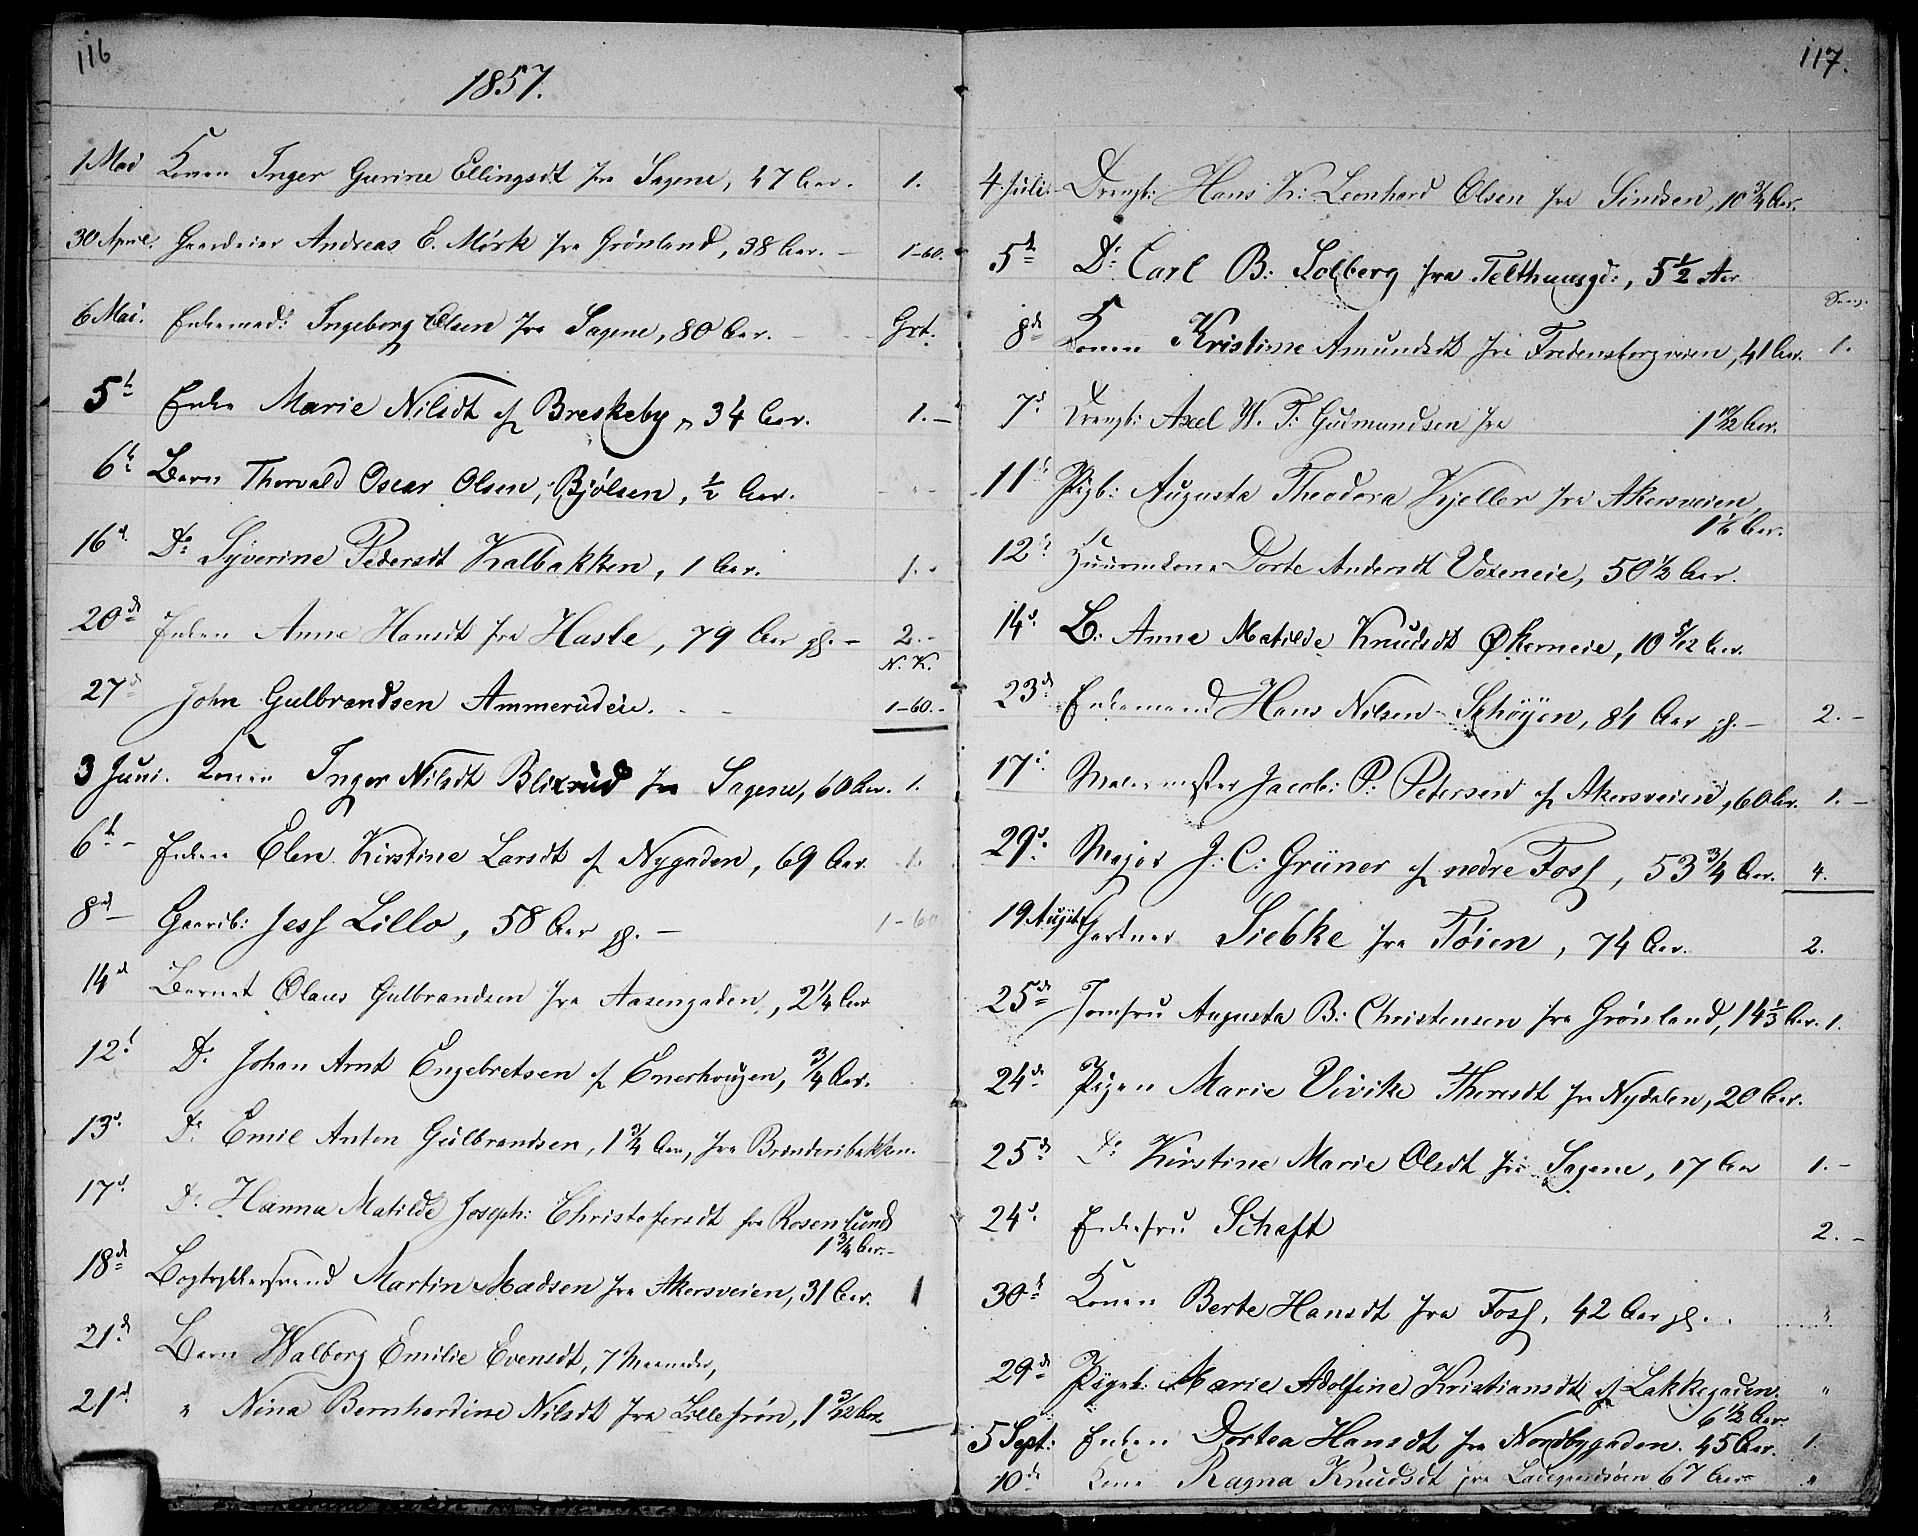 116
1857.
1 Mai Konen Inger Gurine Ellingsdt fra Sagene, 47 Aar. 1.
30 April. Gaardeier Andreas E. Mørk fra Grønland, 38 Aar. – 1–60.
6 Mai. Enkemad: Ingeborg Olsen fra Sagene, 80 Aar. Grt:
5t Enke Marie Nilsdt af Breskeby, 34 Aar. 1.–
6t Barn Thorvald Oscar Olsen, Bjølsen, ½ Aar.
16d Do Syverine Pedersdt Kalbakken, 1 Aar. 1.
20de Enken Anne Hansdt fra Hasle, 79 Aar gl. – 2.–
N. K.
27d John Gulbrandsen Ammerudeie. 1–60.–
3 Juni. Konen Inger Nilsdt Blixrud fra Sagene, 60 Aar. 1.
6t – Enken Elen Kirstine Larsdt af Nygaden, 69 Aar. 1.
8d – Gaarib: Jess Lillo, 58 Aar gl. – 1–60
14d Barnet Olaus Gulbrandsen fra Aasengaden, 2¼ Aar
12t Do Johan Arnt Engebretsen af Enerhougen, ¾ Aar.
13d Do Emil Anton Gulbrandsen, 1¾ Aar, fra Brænderibakken.
17d Do Hanna Matilde Joseph: Christofersdt fra Rosenlund
1¾ Aar.–
18de Bogtrykkersvend Martin Madsen fra Akersveien, 31 Aar. 1
21de Barn Walborg Emilie Evensdt, 7 Maaneder,
21d " Nina Bernhardine Nilsdt fra Lille frøn, 1 3/12 Aar
117.
4 Juli. Drengb: Hans K: Leonhard Olsen fra Sinsen, 10¾ Aar.
5te Do Carl B: Solberg fra Telthuusgd:, 5½ Aar
8de Konen Kristine Amundsdt fra Fredensborgveien, 41 Aar. 1.
7d. Drengb: Axel W. T: Gudmundsen fra 1 11/12 Aar.
11t Pigb: Augusta Theodora Kjeller fra Akersveien,
1⅙ Aar.
12t Huusmkone Dorte Andersdt Voxeneie, 50½ Aar.
14d B: Anne Matilde Knudsdt Økerneie, 10 5/12 Aar.
23de Enkemand Hans Nilsen – Schøyen, 84 Aar gl. – 2.–
17d Malermester Jacob: P: Petersen af Akersveien, 60 Ar. 1.–
29d. Major J: C: Grüner af nedre Foss, 53¾ Aar. 4.
19 August Gartner Siebke fra Tøien, 74 Aar. 2.
25de Jomfru Augusta B: Christensen fra Grønland, 14⅓ Aar. 1.
24de Pigen Marie Vivike Thoresdt fra Nydalen, 20 Aar.
25de Do Kirstine Marie Olsdt fra Sagene, 17 Aar 1.–
24d. Enkefru Schaft 2.–
30t Konen Berte Hansdt fra Foss, 42 Aar gl. "
29de Pigeb: Marie Adolfine Kristiansdt af Lakkegaden. "
6½ Aar
5 Sept: Enken Dortea Hansdt fra Nordbygaden. 45 Aar. 1.
10de Kone Ragna Knudsdt fra 67 Aar "